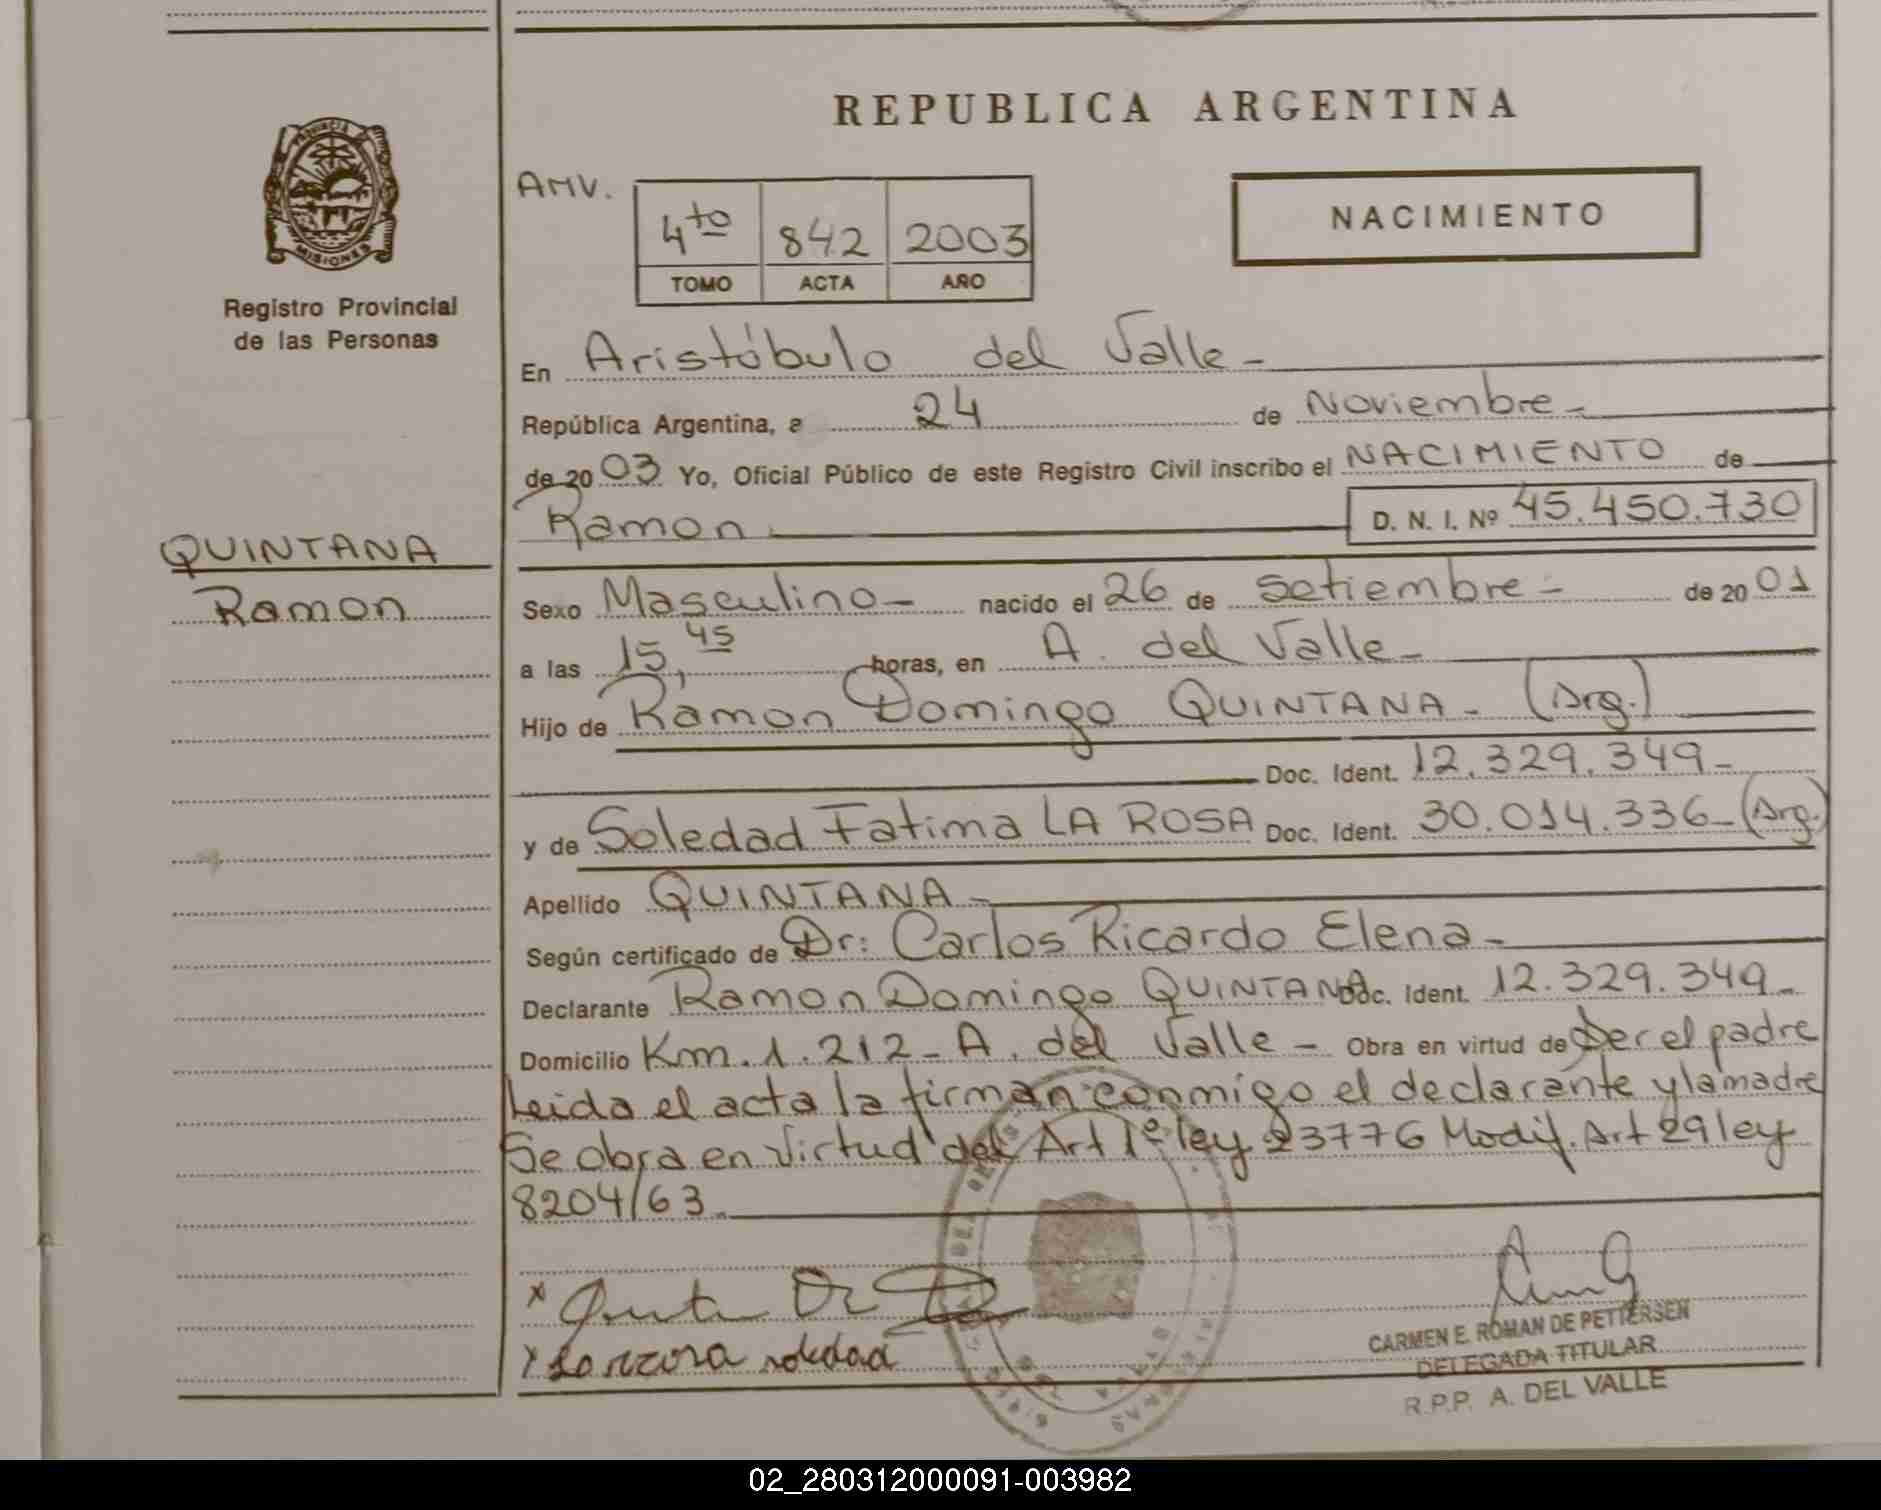 REPUBLICA ARGENTINA
PROVINCIA DE MISIONES
Registro Provincial
de las Personas
AMV.
4to 842 2003
TOMO ACTA AÑO
NACIMIENTO
En Aristóbulo del Valle-
República Argentina, a 24 de Noviembre-
de 2003 Yo, Oficial Público de este Registro Civil inscribo el NACIMIENTO de
Ramon D. N. I. Nº 45.450.730
QUINTANA
Ramon
Sexo Masculino- nacido el 26 de Setiembre- de 2001
a las 15,45 horas, en A. del Valle-
Hijo de Ramon Domingo QUINTANA- (Arg.)
Doc. Ident. 12.329.349-
y de Soledad Fatima LA ROSA Doc. Ident. 30.014.336-(Arg.)
Apellido QUINTANA-
Según certificado de Dr: Carlos Ricardo Elena-
Declarante Ramon Domingo QUINTANA Doc. Ident. 12.329.349-
Domicilio Km. 1.212- A. del Valle- Obra en virtud de Ser el padre
Leida el acta la firman conmigo el declarante y la madre
Se obra en virtud del Art 1º ley 23776 Modif. Art 29 ley
8204/63
soledad
CARMEN E. ROMAN DE PETTERSEN
DELEGADA TITULAR
R.P.P. A. DEL VALLE
02_280312000091-003982